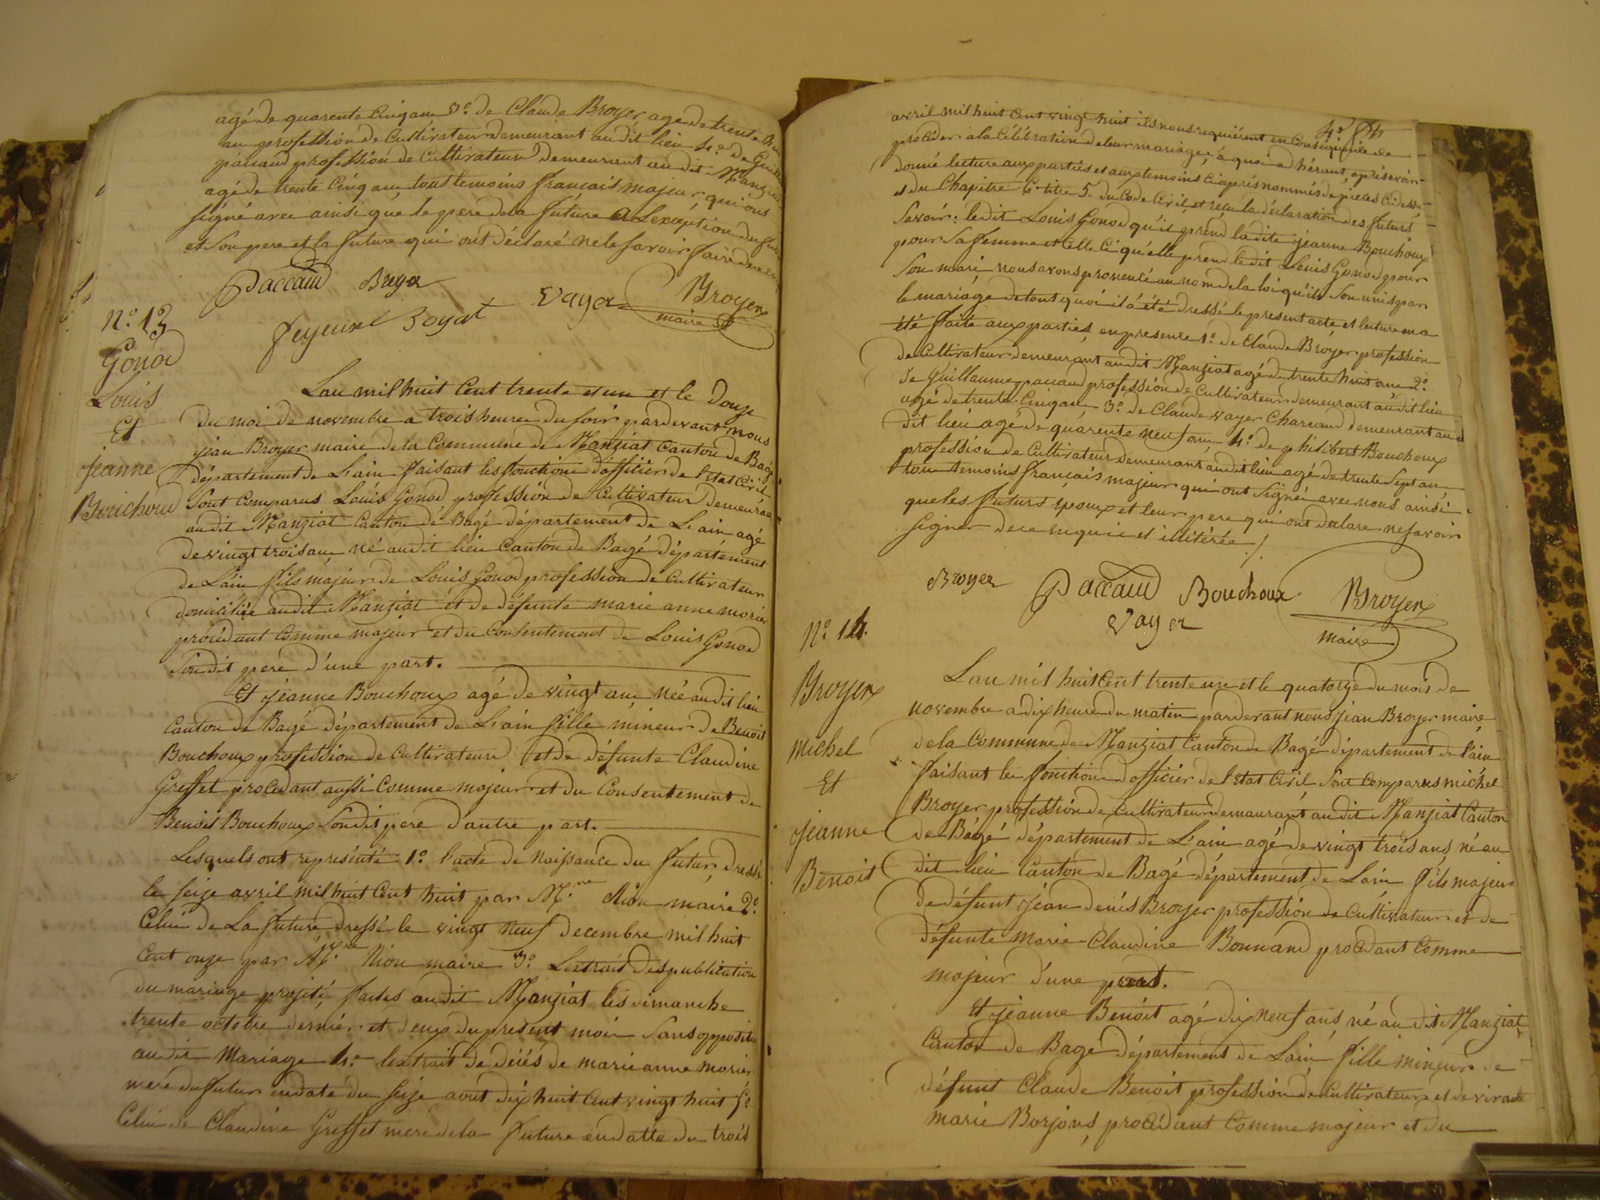 agé de quarente Cinq ans 3.º de Claude Broyer agé de trente
ans profession de Cultivateur demeurant audit lieu 4.º de
pacaud profession de Cultivateur demeurant audit Manziat
agé de trente Cinq ans tous temoins francais majeur, qui ons
signé avec ainsi que le pere de la future a Lexception du futur
et son pere et la future qui ont déclaré ne le savoir faire
Paccaud Broyer
feyeux Boyat Vayer Broyer
maire
Nº 13
Gonod
Louis
Et
jeanne
Bouchoux
Lan mil huit Cent trente et un et le Douze
du moi de novembre a trois heures du soir pardevant nous
jean Broyer maire de la Commune de Manziat Canton de Bagé
département de Lain faisant les fonctions d'officier de l'état Civil
sont Comparus Louis Gonod profession de Cultivateur demeurant
audit Manziat Canton de Bagé département de Lain agé
de vingt trois ans né audit lieu Canton de Bagé département
de Lain fils majeur de Louis Gonod profession de Cultivateur
domicilié audit Manziat et de défunte marie anne morier
procédant Comme majeur et du Consentement de Louis Gonod
Son dit pere d'une part.
Et jeanne Bouchoux agé de vingt ans née audit lieu
Canton de Bagé département de Lain fille mineur de Benoit
Bouchoux profession de Cultivateur et de défunte Claudine
Greffet procédant aussi Comme majeur et du Consentement de
Benoit Bouchoux Son dit pere d'autre part.
Lesquels ont représenté 1.º l'acte de naissance du futur, dressé
le seize avril mil huit Cent huit par M.re Nion maire 2.º
Celui de La future dressé le vingt neuf decembre mil huit
Cent onze par M.re Nion maire 3.º Lextrait des publication
du mariage projeté, faites audit Manziat les dimanche
trente octobre dernier et deux du present mois Sans opposit
audit Mariage 4.º lextrait de décés de marie anne morier
mere du futur endate du seize aout dix huit Cent vingt huit 5.º
Celui de Claudine Greffet mere de la future en datte du trois
avril mil huit Cent vingt huit ils nous requiérent en Conséquence de
procéder a la Célébration de leur mariage, a quoi adhérant, après avoir
donné lecture aux parties et aux temoins Ci après nommés de pieces Cidessus
et du Chapitre 6 titre 5 du Code Civil, et recu la déclaration des futurs
Savoir: ledit Louis Gonod qu'il prend ladite jeanne Bouchoux
pour Sa femme et Celle Ci qu'elle prend ledit Louis Gonod pour
Son mari nous avons prononcé au nom de la loi qu'ils Son unis par
le mariage de tout quoi il a été dressé le present acte et lecture en a
été faite aux parties, en presence 1.º de Claude Broyer profession
de Cultivateur demeurant audit Manziat agé de trente huit ans 2.º
de Guillaume pacaud profession de Cultivateur demeurant audit lieu
agé de trente Cinq ans 3.º de Claude Vayer Chareaud demeurant au
dit lieu agé de quarente neuf ans 4.º de philibert Bouchoux
profession de Cultivateur demeurant audit lieu agé de trente Sept ans
tous temoins francais majeur qui ont Signé avec nous ainsi
que les futurs époux et leur pere qui ont déclaré ne savoir
Signer de ce enquis et intéréé ./.
Broyer Paccaud Bouchoux Broyer
Vayer maire
Nº 14.
Broyer
Michel
Et
jeanne
Benoit
Lan mil huit Cent trente un et le quatorze du mois de
novembre a dix heures du matin pardevant nous jean Broyer maire
de la Commune de Manziat Canton de Bagé département de Lain
faisant les fonctions d'officier de l'état Civil Sont Comparus michel
Broyer profession de Cultivateur demeurant audit Manziat Canton
de Bagé département de Lain agé de vingt trois ans né au
dit lieu Canton de Bagé département de Lain fils majeur
de défunt jean denis Broyer profession de Cultivateur et de
défunte Marie Claudine Bonnand procédant Comme
majeur d'une part.
Et jeanne Benoit agé dix neuf ans né audit Manziat
Canton de Bagé département de Lain fille mineur de
défunt Claude Benoit profession de Cultivateur et de vivante
Marie Borjons, procédant Comme majeur et du